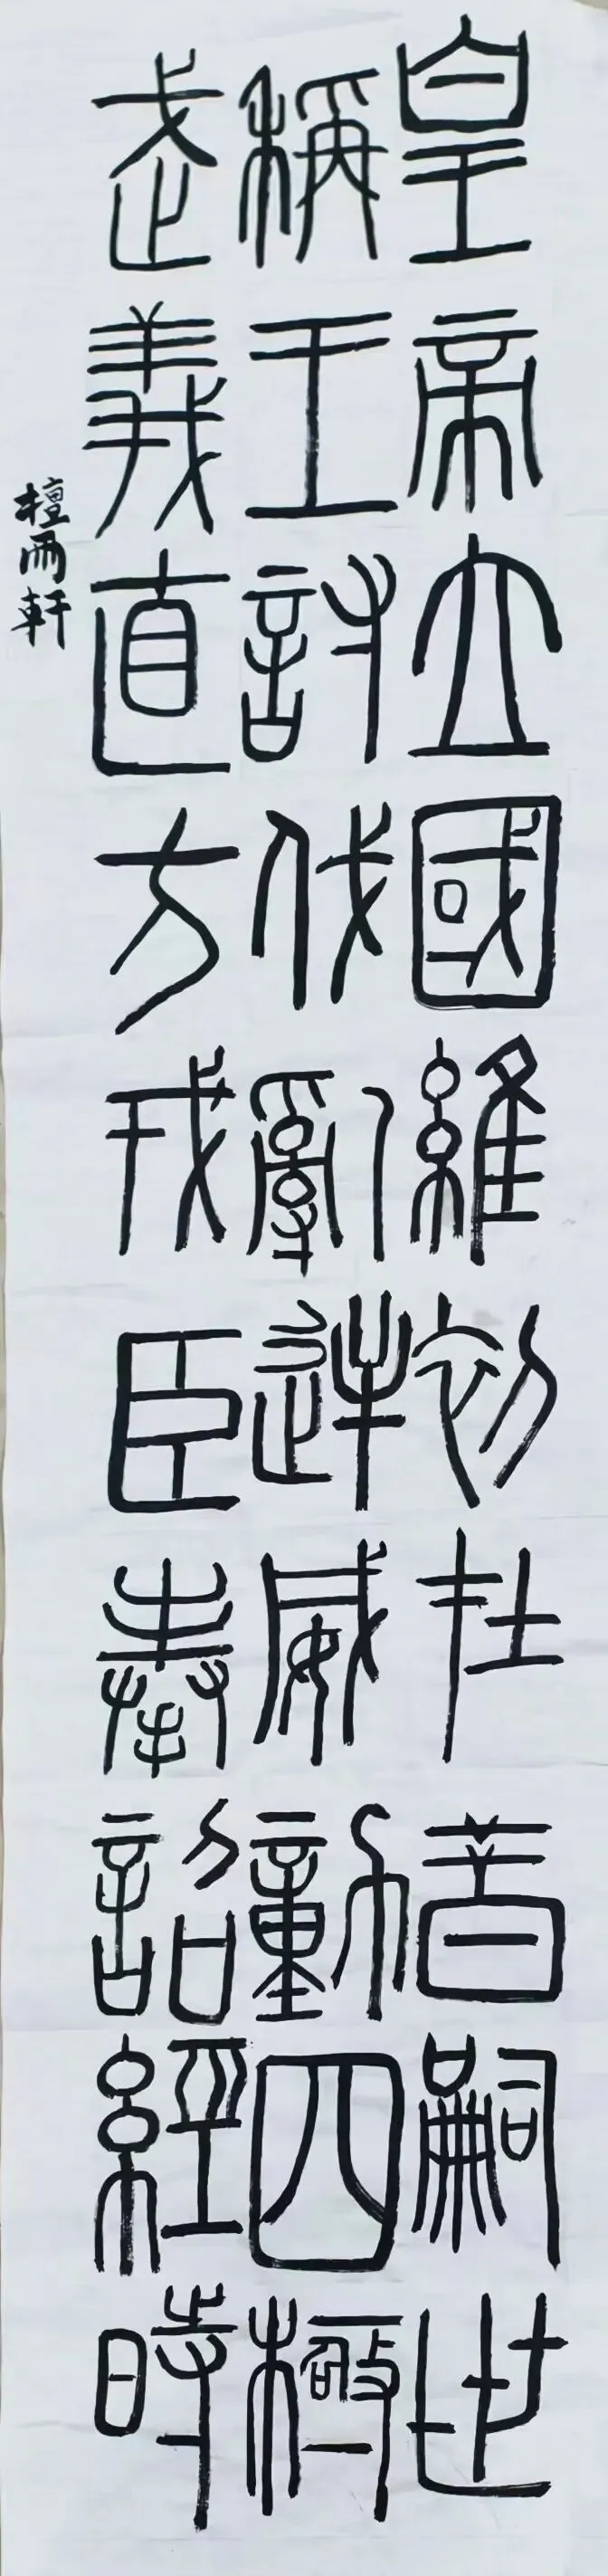 皇帝立國維初在昔嗣世
稱王討伐亂逆威動四極
武義直方戎臣奉詔經時
檀雨軒